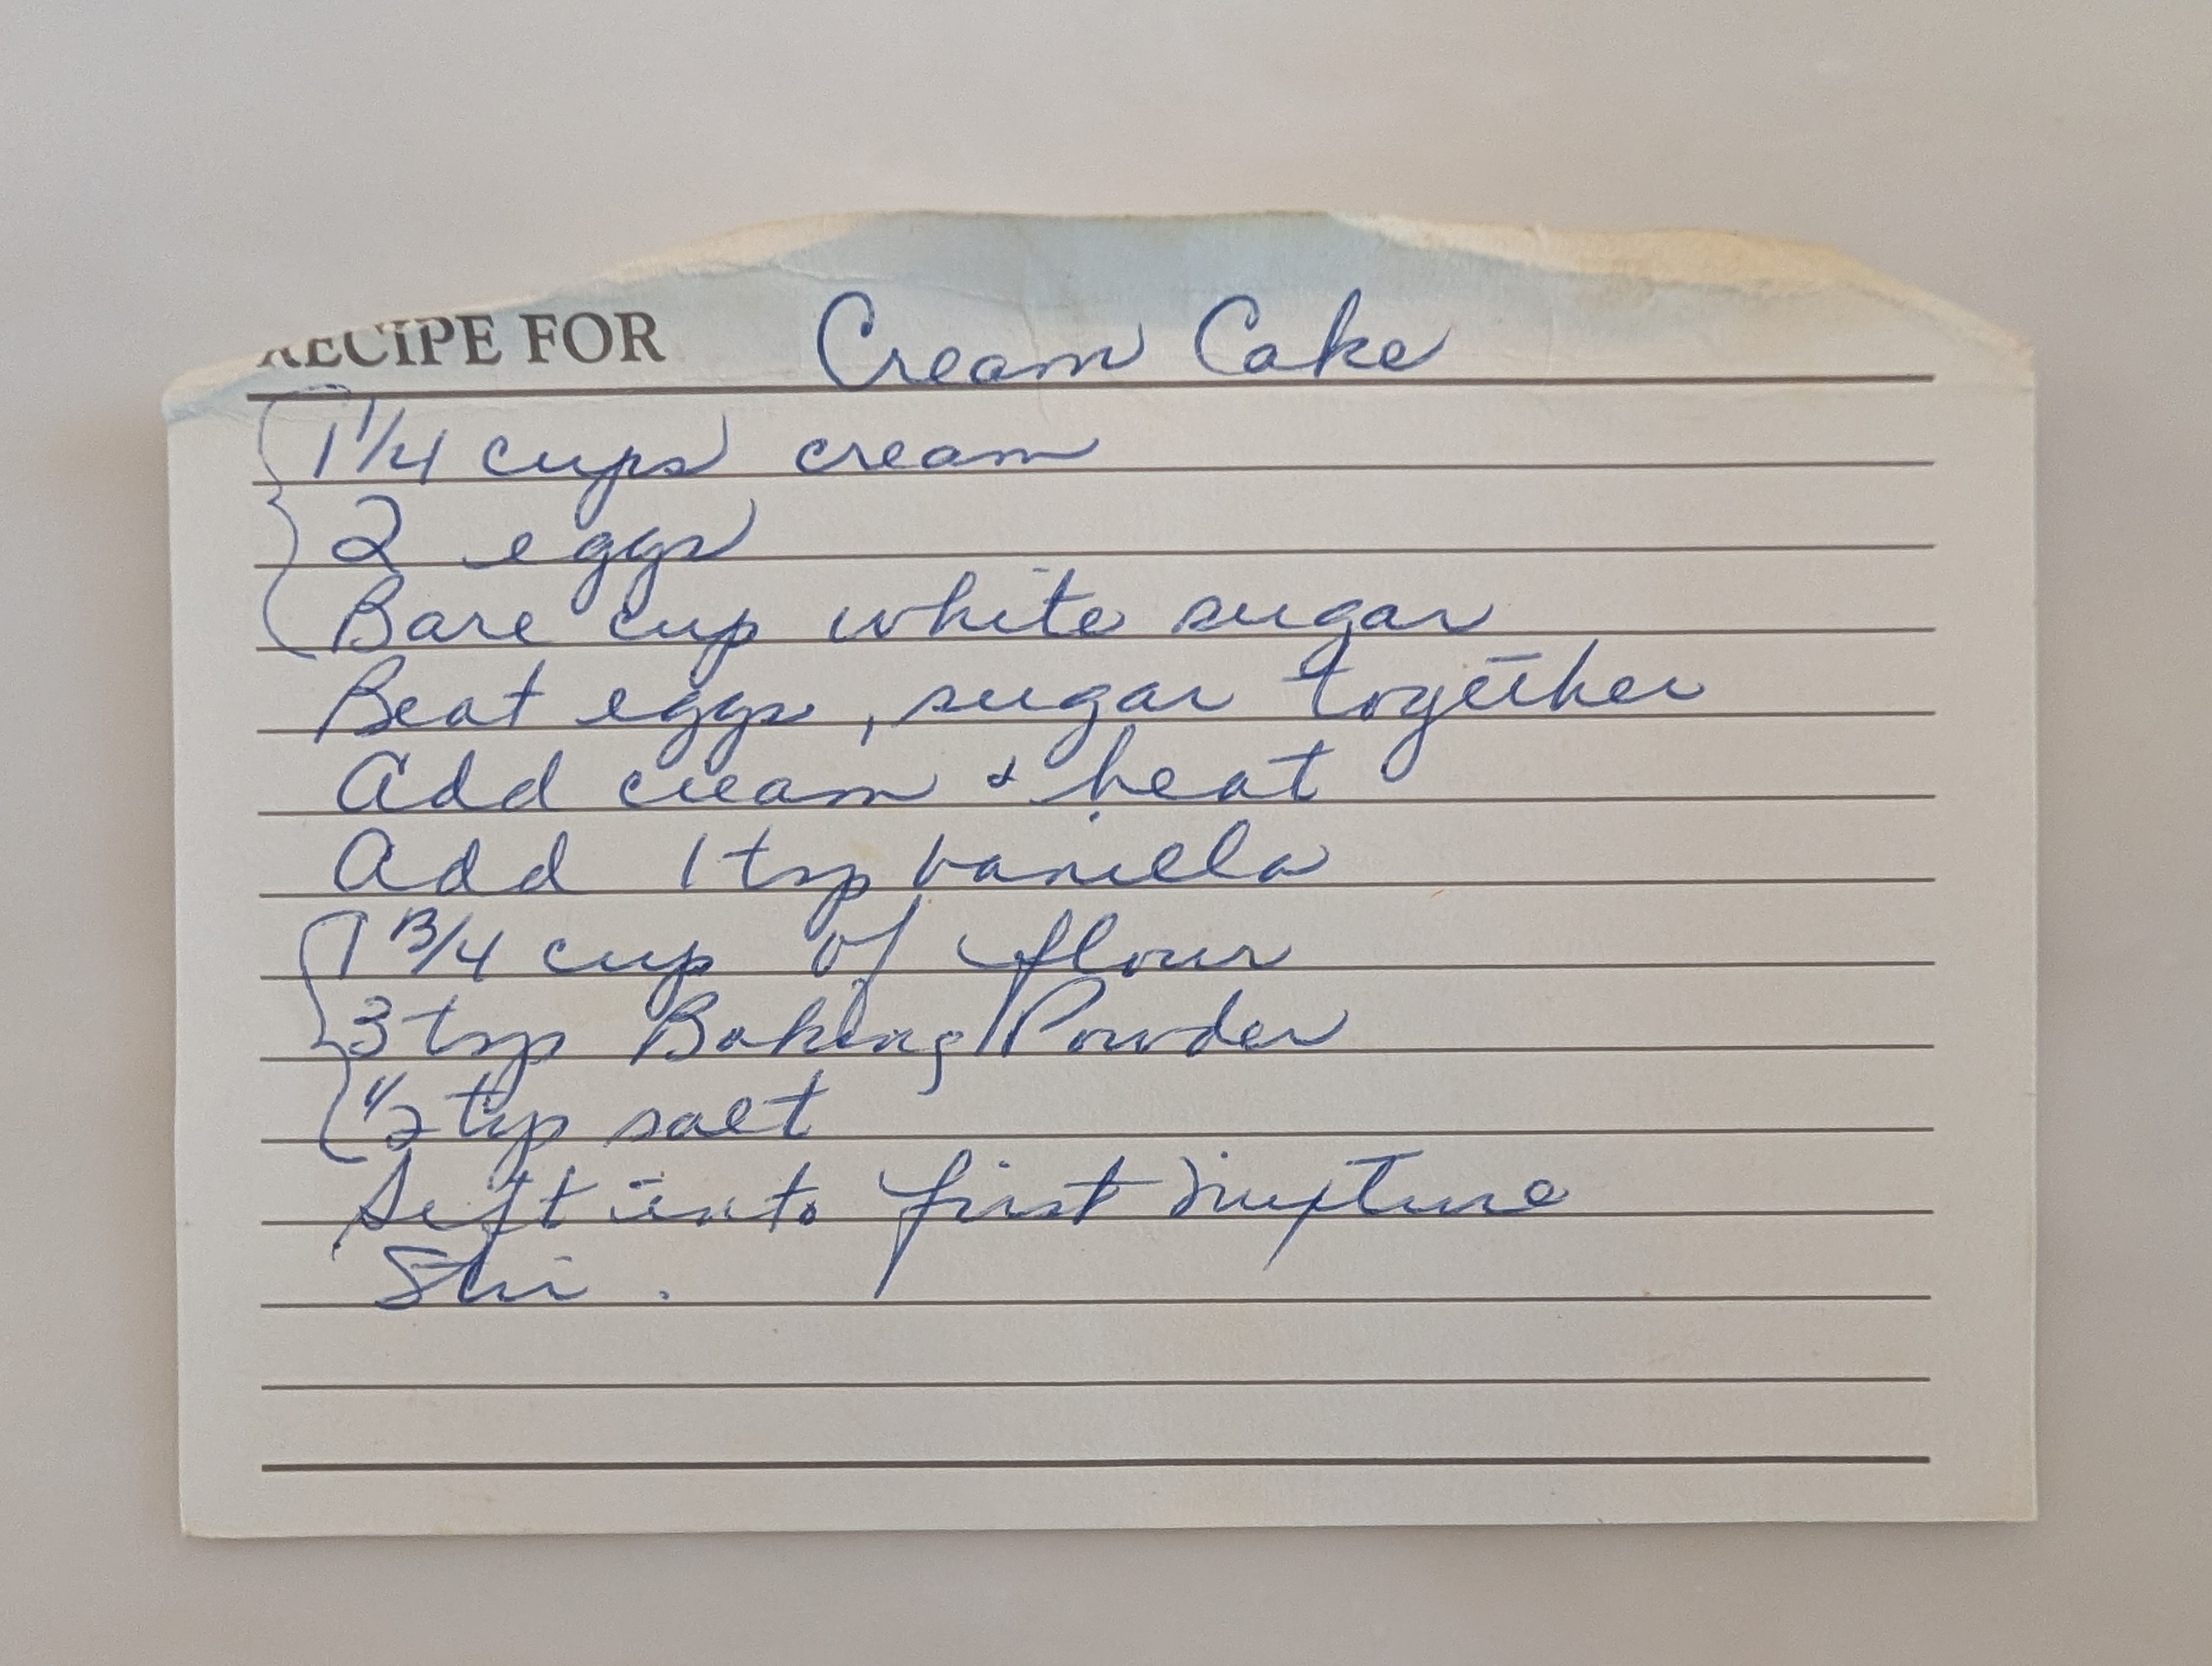 RECIPE FOR Cream Cake
1 1/4 cups cream
2 eggs
Bare cup white sugar
Beat eggs, sugar together
Add cream & heat
Add 1 tsp vanilla
1 3/4 cup of flour
3 tsp Baking Powder
1/2 tsp salt
Sift into first mixture
Stir.